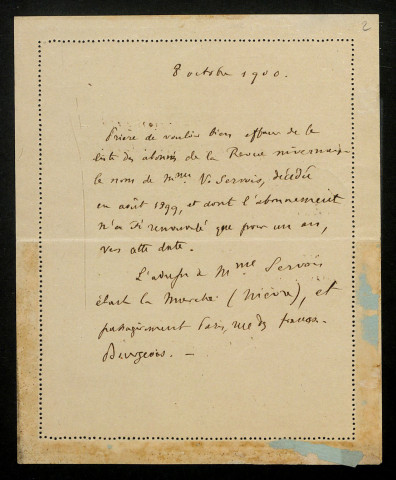 2
8 octobre 1900.
Prière de vouloir bien effacer de la
liste des abonnés de la Revue nivernaise
le nom de Mme Ve Servois, décédée
en août 1899, et dont l'abonnement
n'a été renouvelé que pour un an,
vers cette date.
L'adresse de Mme Servois
était la Marche (Nièvre), et
passagèrement Paris, rue des Francs-
Bourgeois. —